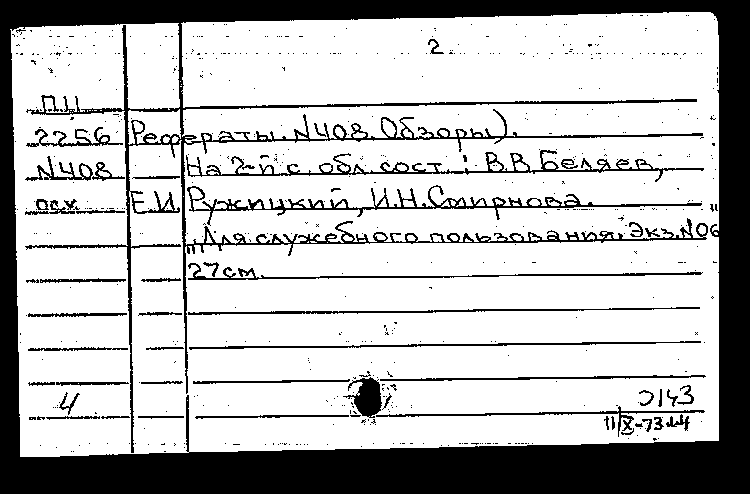 2
П11
2256 Рефераты. N408. Обзоры).
N408 На 2-й с. обл. сост.: В.В. Беляев,
Е.И. Ружицкий, И.Н. Смирнова.
„Для служебного пользования. Экз. N06"
27 см.
4
11/X-73